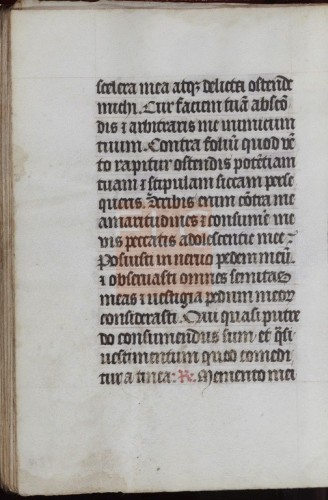 scelera mea atq; delicta ostende
michi. Cur faciem tuā abscō
dis ⁊ arbitraris me inimicum
tuum. Contra foliū quod vē
to rapitur ostendis potētiam
tuam ⁊ stipulam siccam perse
queris. Scribis enim cōtra me
amaritudines ⁊ consumē me
vis peccatis adolescentie mee:
Posuisti in neruo pedem meū
⁊ obseruasti omnes semitas
meas ⁊ uestigia pedum meoꝝ
considerasti. Qui quasi putre
do consumendus sum et q̄si
uestimentum quod comedi
tur a tinea: R. Memento mei